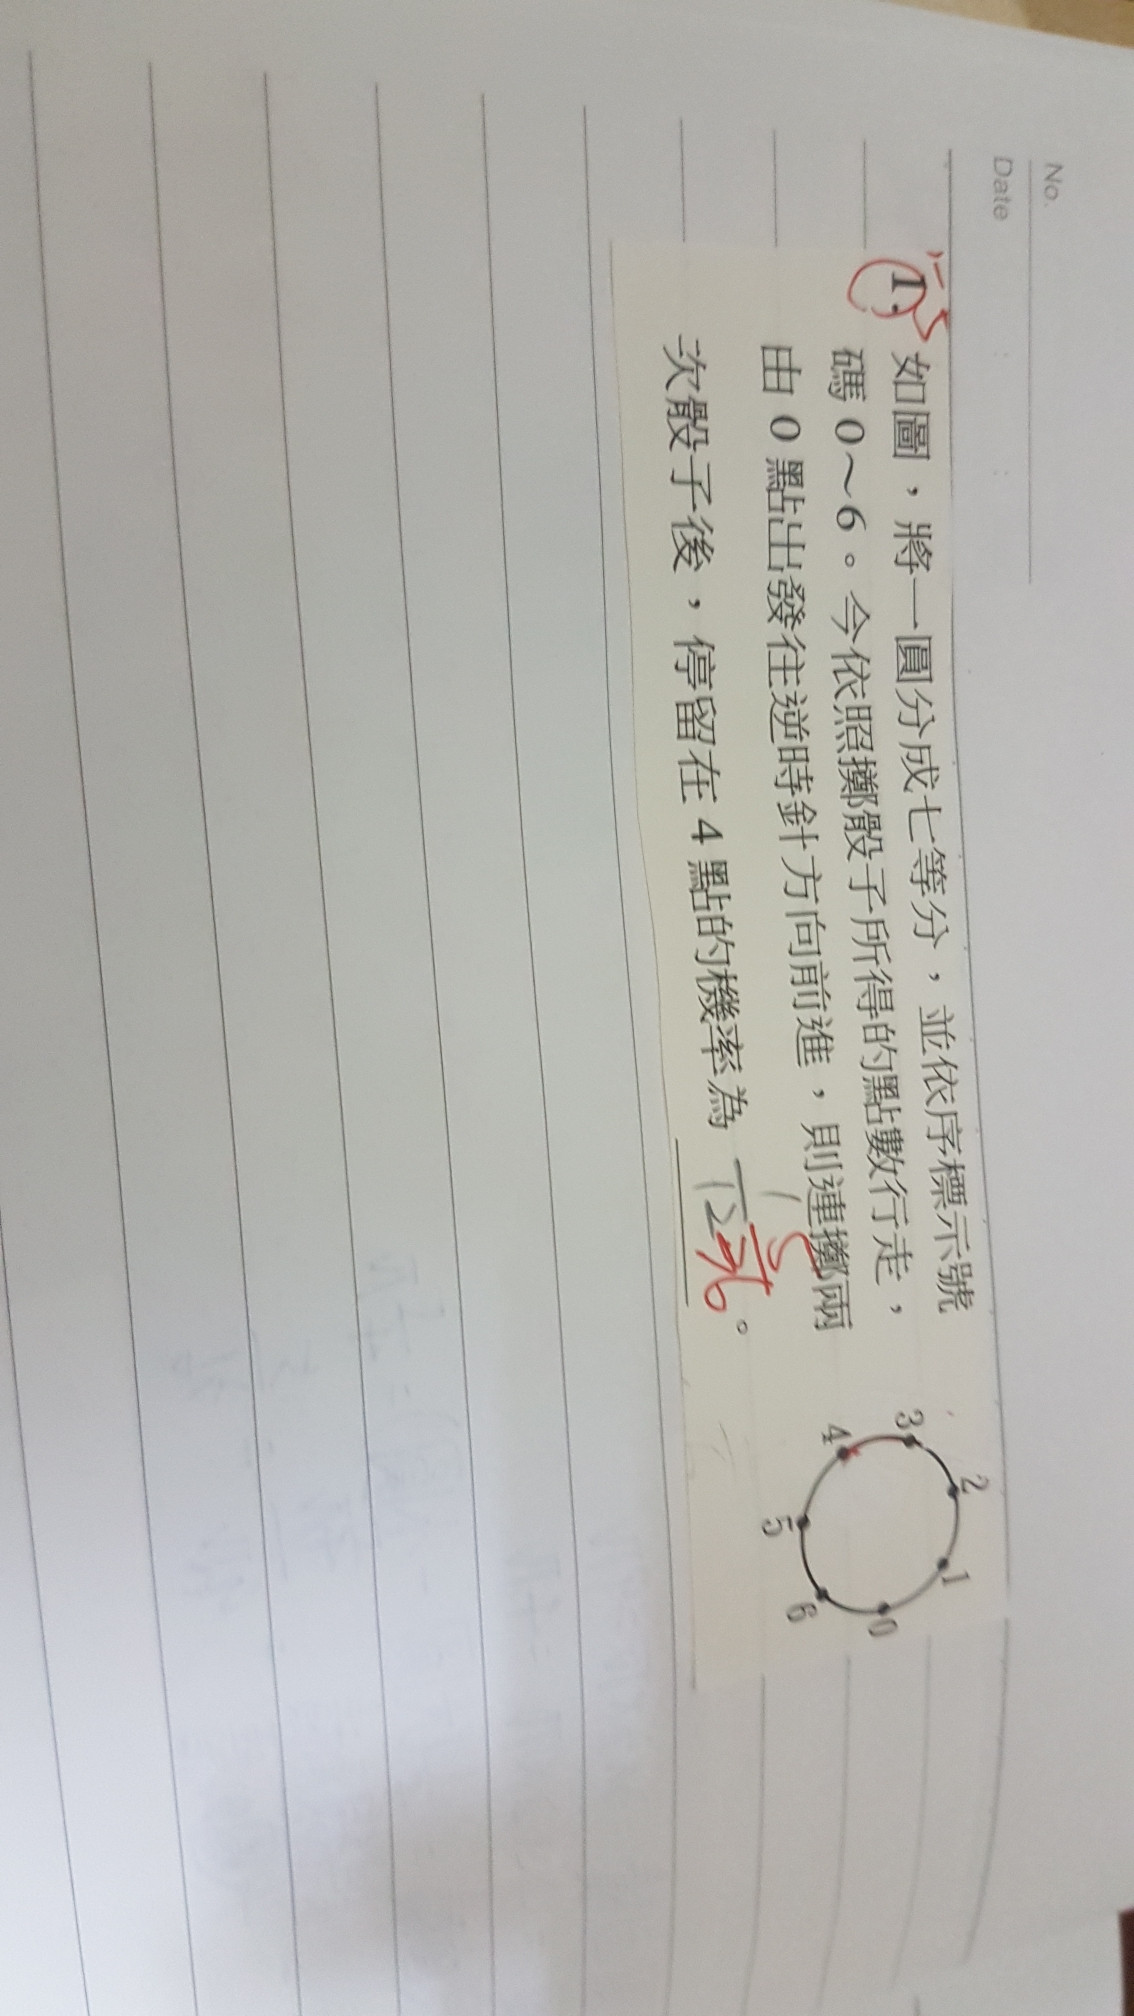 No.
Date
1. 如圖，將一圓分成七等分，並依序標示號
碼 0～6。今依照擲骰子所得的點數行走，
由 0 點出發往逆時針方向前進，則連擲兩
次骰子後，停留在 4 點的機率為 1/12 5/36 。
2
3
1
4
0
5
6